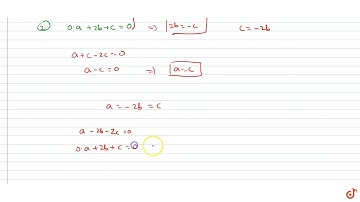 ② 0·a + 2b + c = 0 ⇒ 2b = -c c = -2b
a + c - 2c = 0
a - c = 0 ⇒ a = c
a = -2b = c
a - 2b - 2c = 0
0·a + 2b + c = 0